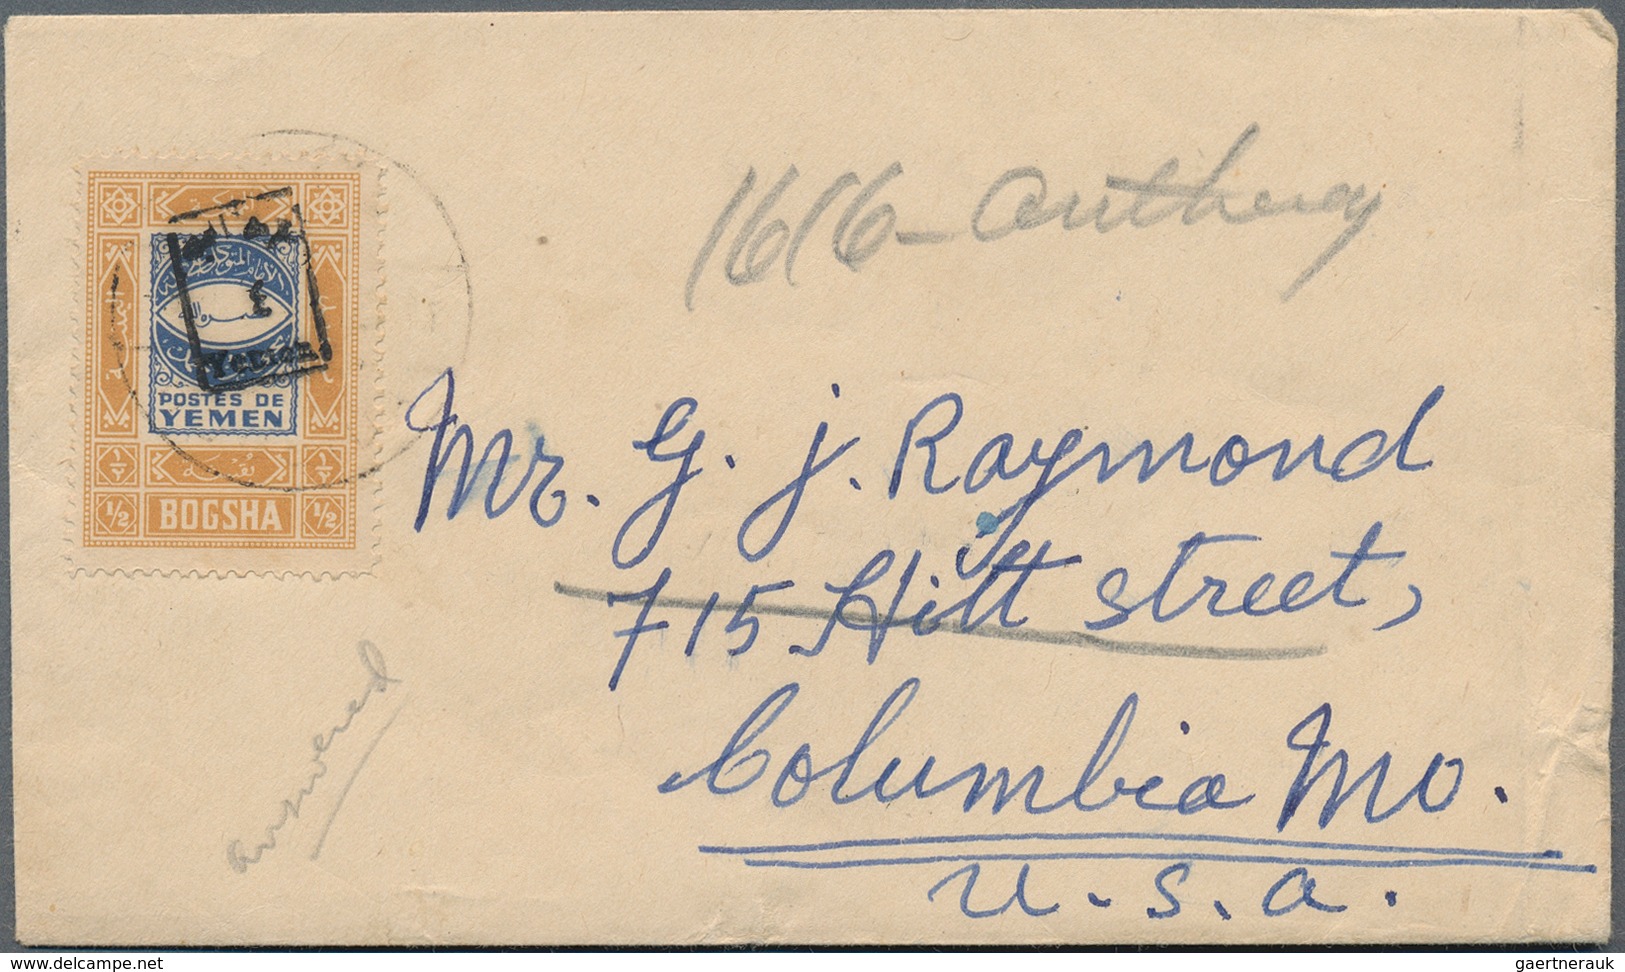 1616 - Anthony
٤
Yemen
POSTES DE
YEMEN
½ BOGSHA ½
Mr. G. J. Raymond
715 Hitt Street,
Columbia Mo.
U.S.A.
answered
www.delcampe.net
gaertnerauk